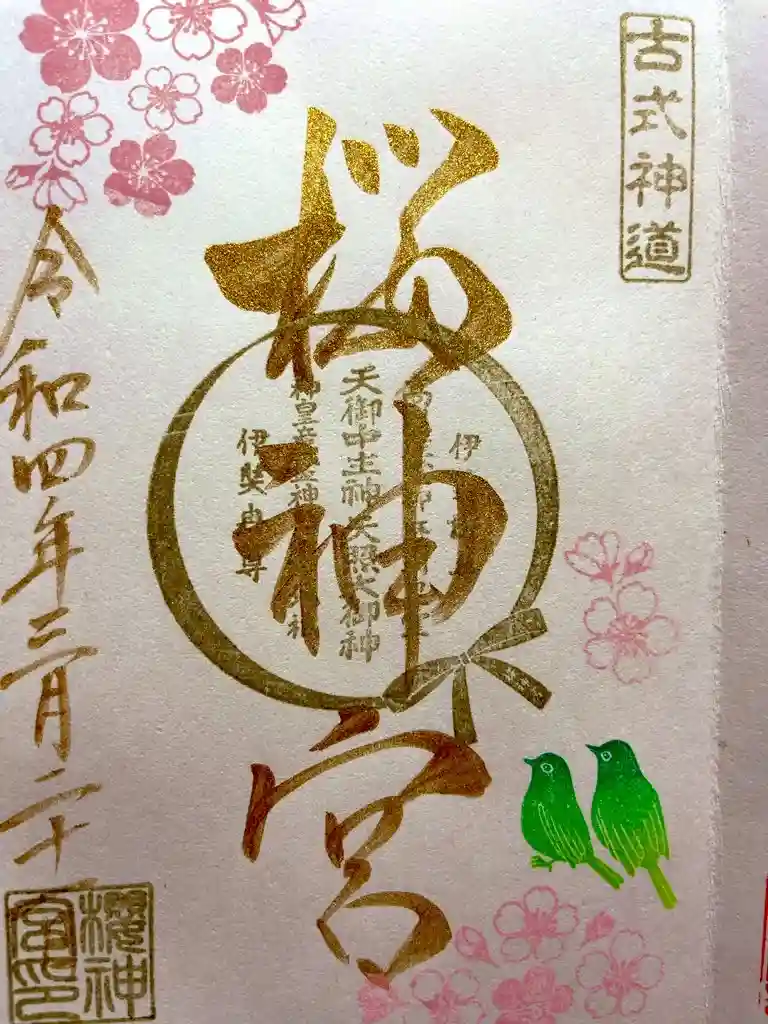 古式神道
桜神宮
天御中主神天照大御神
令和四年三月二十
櫻神
宮印